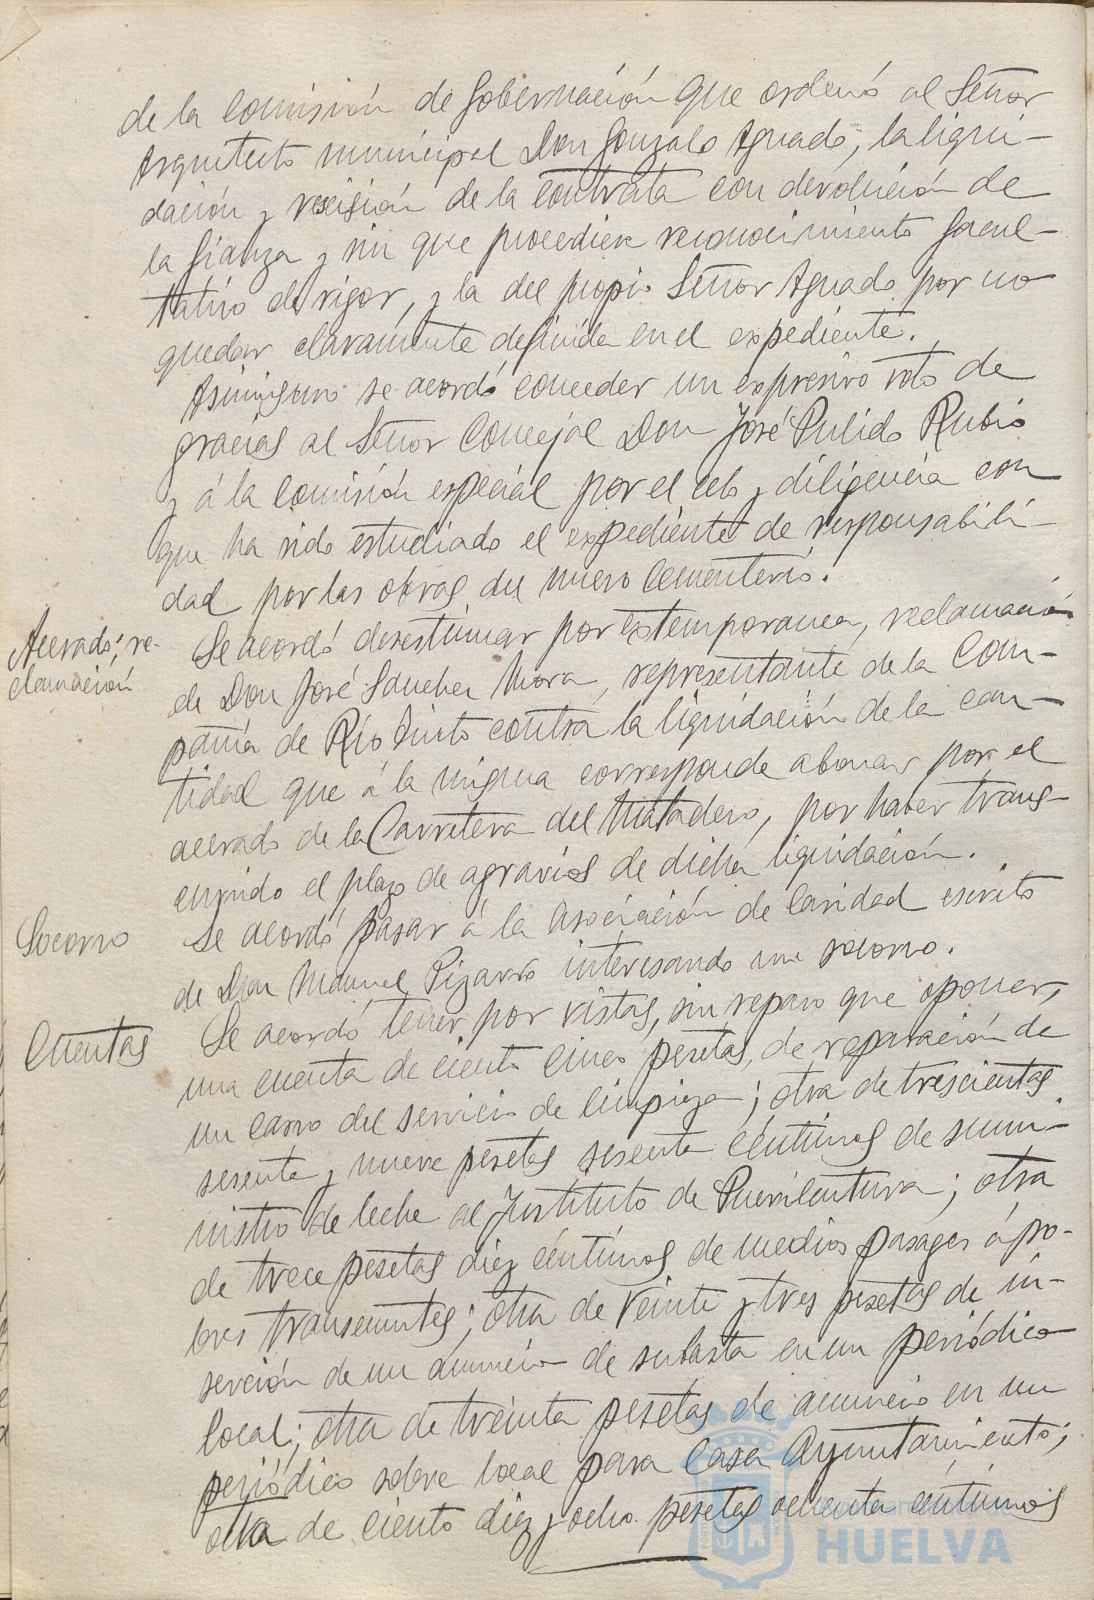 de la Comisión de Gobernación que ordenó al Señor
Arquitecto municipal Don Gonzalo Aguado, la liqui-
dación y rescisión de la contrata con devolución de
la fianza y sin que procediere reconocimiento facul-
tativo de rigor, y la del propio Señor Aguado por no
quedar claramente definida en el expediente.
Asimismo se acordó conceder un expresivo voto de
gracias al Señor Concejal Don José Pulido Rubio
y á la Comisión especial por el celo y diligencia con
que ha sido estudiado el expediente de responsabili-
dad por las obras del nuevo Cementerio.
Acerado; re-
clamación
Se acordó desestimar por extemporanea, reclamación
de Don José Sanchez Mora, representante de la Com-
pañía de Río Tinto contra la liquidación de la can-
tidad que á la misma corresponde abonar por el
acerado de la Carretera del Matadero, por haber trans-
currido el plazo de agravios de dicha liquidación.
Socorro
Se acordó pasar á la Asociación de Caridad escrito
de Don Manuel Pizarro interesando un socorro.
Cuentas
Se acordó tener por vistas, sin reparo que oponer,
una cuenta de ciento cinco pesetas, de reparación de
un carro del servicio de limpieza; otra de trescientas
sesenta y nueve pesetas sesenta céntimos de sumi-
nistro de leche al Instituto de Puericultura; otra
de trece pesetas diez céntimos de medios pasages á po-
bres transeuntes; otra de veinte y tres pesetas de in-
serción de un anuncio de subasta en un periódico
local; otra de treinta pesetas de anuncio en un
periódico sobre local para Casa Ayuntamiento;
otra de ciento diez y ocho pesetas ochenta céntimos
HUELVA